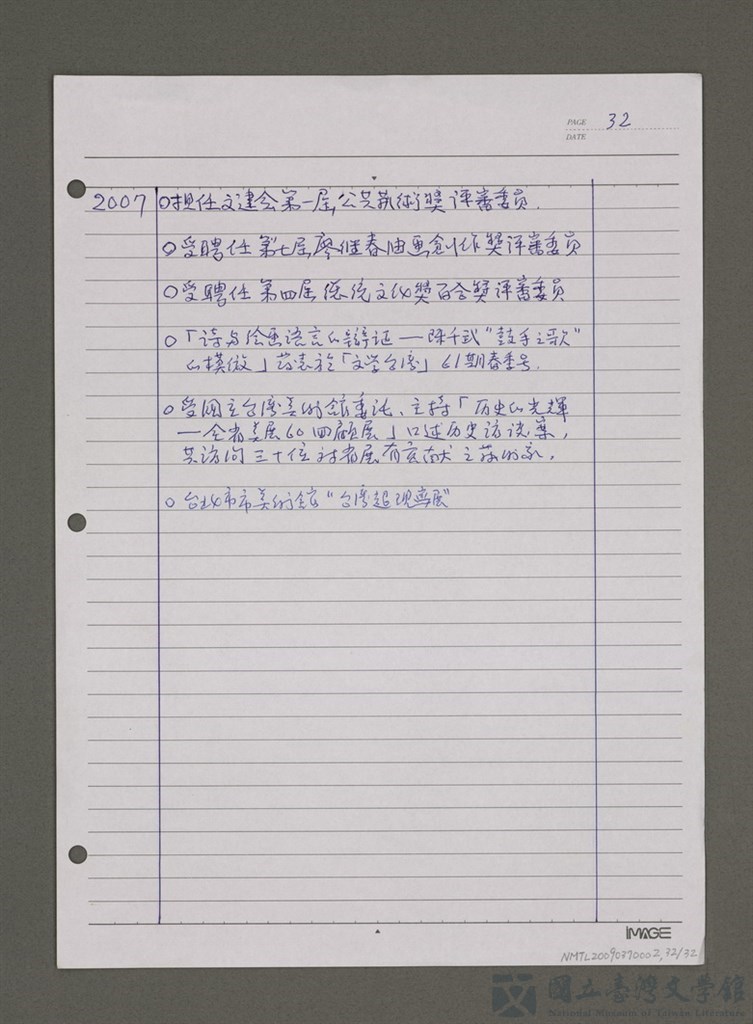 PAGE 32
DATE
2007 ○担任文建会第一届公共艺術獎評審委員.
○受聘任第七届廖继春油画創作獎評審委員
○受聘任第四届總統文化獎百合獎評審委員
○「詩与绘画語言的辯証—陳千武“鼓手之歌”
的模倣」發表於「文学台湾」61期春季号.
○受国立台湾美術館委託、主持「历史的光輝
—全省美展60回顧展」口述历史訪談案,
共訪问三十位对省展有贡献之藝術家.
○台北市市美術館“台湾超現實展”
iMAGE
NMTL20090370002,32/32
國立臺灣文學館
National Museum of Taiwan Literature